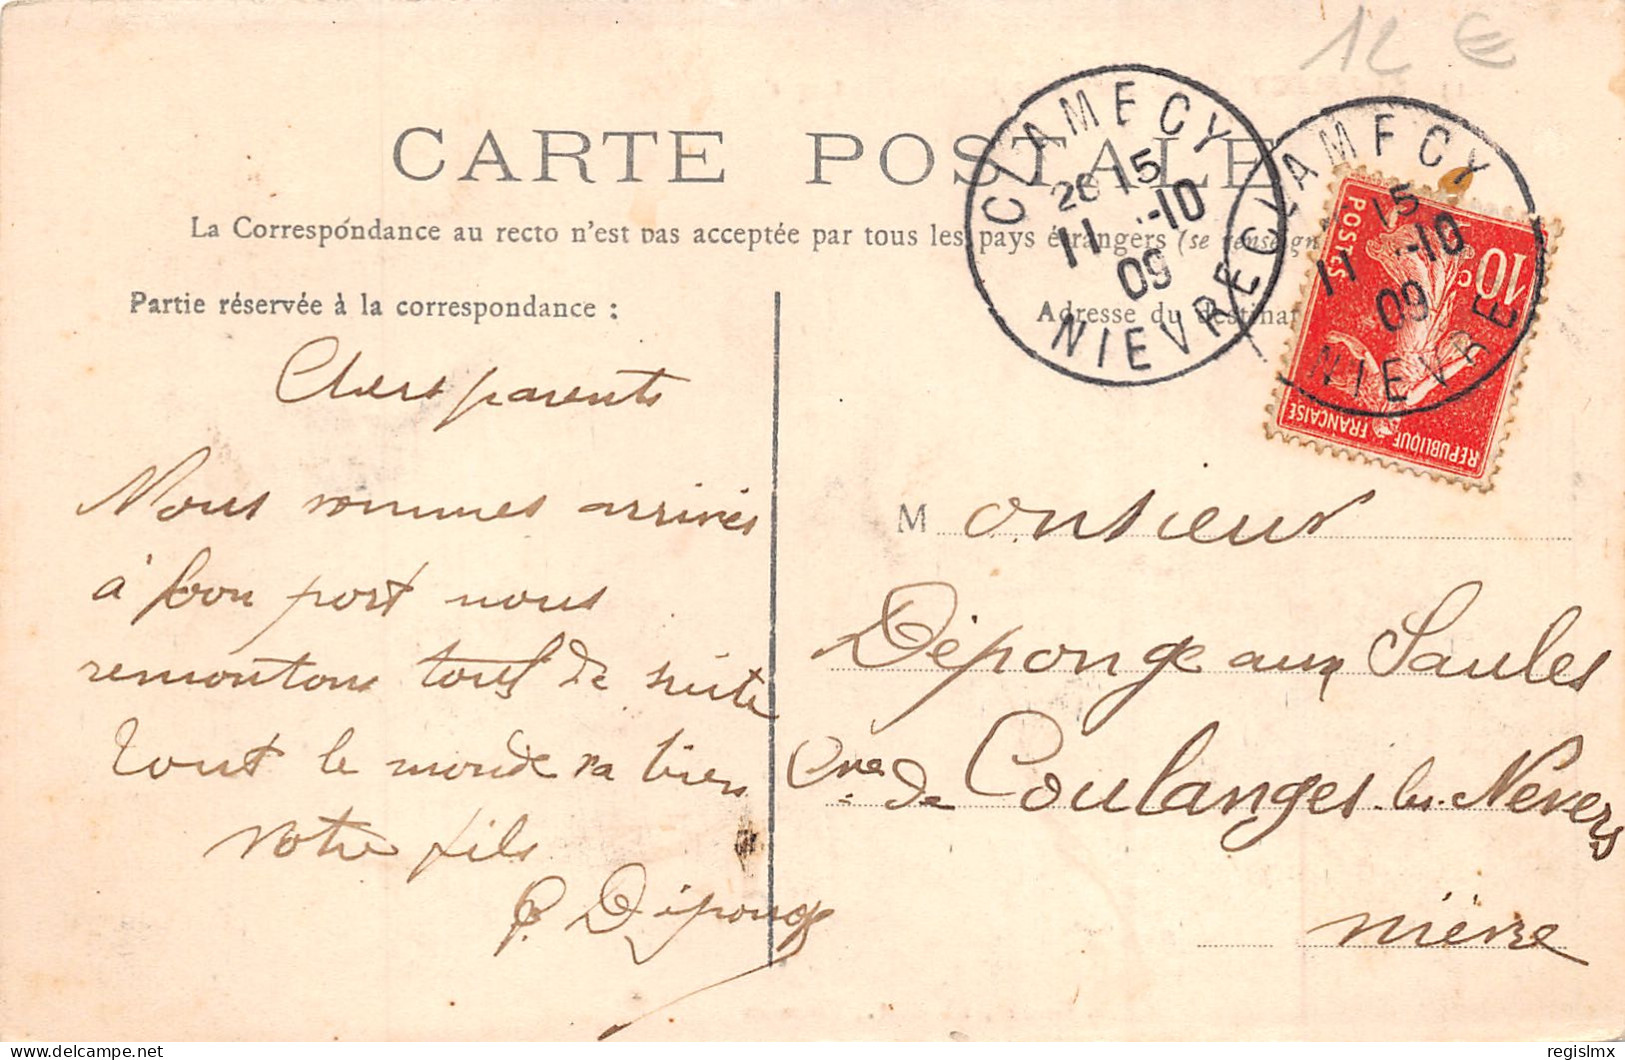 12 €
CARTE POSTALE
La Correspondance au recto n'est pas acceptée par tous les pays étrangers (se renseign
Partie réservée à la correspondance :
Chers parents
Nous sommes arrivés
à bon port nous
remontons tous de suite
tout le monde va bien
votre fils
P. Déponge
CLAMECY
20 15
11 -10
09
NIEVRE
CLAMECY
15
11 -10
09
NIEVRE
POSTES
10 c
REPUBLIQUE FRANÇAISE
Adresse du destinat
Monsieur
Déponge aux Saules
Cne de Coulanges les Nevers
Nièvre
regislmx